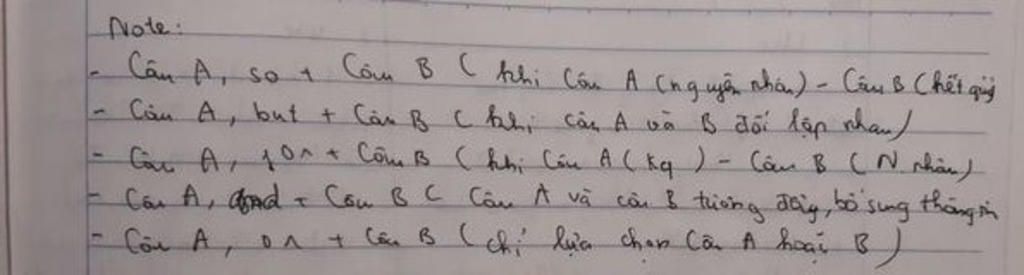 Note:
- Câu A, so + Câu B ( khi Câu A (nguyên nhân) - Câu B (kết quả
- Câu A, but + Câu B ( khi câu A và B đối lập nhau)
- Câu A, for + Câu B ( khi Câu A (kq) - Câu B ( N. nhân)
- Câu A, and + Câu B ( Câu A và câu B tương đồng, bổ sung thông tin
- Câu A, or + Câu B ( chỉ lựa chọn Câu A hoặc B )